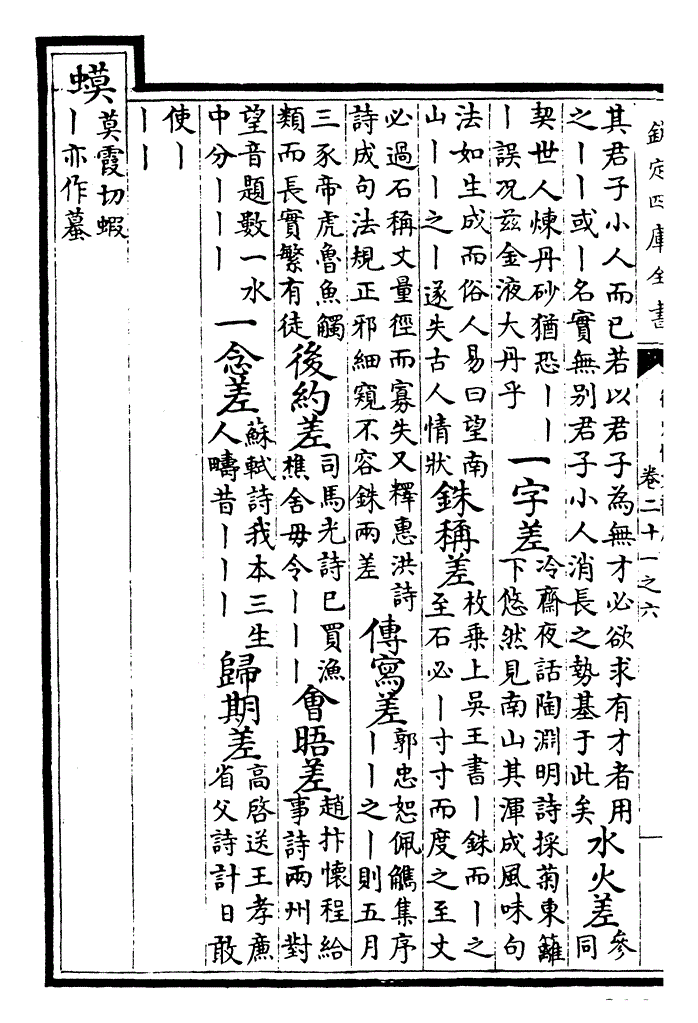 欽定四庫全書
卷二十一之六
其君子小人而已若以君子為無才必欲求有才者用
之丨丨或丨名實無别君子小人消長之勢基于此矣
水火差
參
同
契世人煉丹砂猶恐丨丨
丨誤况兹金液大丹乎
一字差
冷齋夜話陶淵明詩採菊東籬
下悠然見南山其渾成風味句
法如生成而俗人易曰望南
山丨丨之丨遂失古人情狀
銖稱差
枚乗上吳王書丨銖而丨之
至石必丨寸寸而度之至丈
必過石稱丈量徑而寡失又釋惠洪詩
詩成句法規正邪細窺不容銖兩差
傳寫差
郭忠恕佩觽集序
丨丨之丨則五月
三豕帝虎魯魚觸
類而長實繁有徒
後約差
司馬光詩已買漁
樵舍毋令丨丨丨
會晤差
趙抃懷程給
事詩兩州對
望音題數一水
中分丨丨丨
一念差
蘇軾詩我本三生
人疇昔丨丨丨
歸期差
高啓送王孝廉
省父詩計日敢
使丨
丨丨
蟆
莫霞切蝦
丨亦作蟇